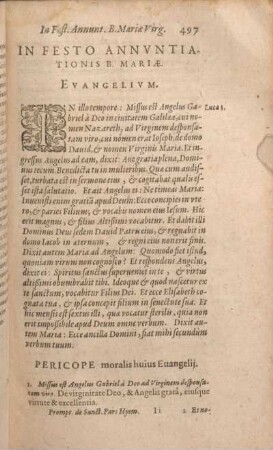 In Fest. Annunt. B. Mariæ Virg. 497
IN FESTO ANNVNTIA-
TIONIS B. MARIÆ.
EVANGELIVM.
IN illo tempore: Missus est Angelus Ga- Lucæ 1.
briel à Deo in ciuitatem Galileæ, cui no-
men Nazareth, ad Virginem desponsa-
tam viro, cui nomen erat Ioseph, de domo
Dauid, & nomen Virginis Maria. Et in-
gressus Angelus ad eam, dixit: Aue gratia plena, Domi-
nus tecum: Benedicta tu in mulieribus. Quæ cum audis-
set, turbata est in sermone eius, & cogitabat qualis es-
set ista salutatio. Et ait Angelus ei: Ne timeas Maria:
Inuenisti enim gratiã apud Deum: Ecce concipies in v-
tero, & paries Filium, & vocabis nomen eius Iesum. Hic
erit magnus, & filius Altissimi vocabitur. Et dabit illi
Dominus Deus sedem Dauid Patris eius, & regnabit in
domo Iacob in æternum, & regni eius non erit finis.
Dixit autem Maria ad Angelum: Quomodo fiet istud,
quoniam virum non cognosco? Et respondens Angelus,
dixit ei: Spiritus sanctus superueniet in te, & virtus
altissimi obumbrabit tibi. Ideoque & quod nascetur ex
te sanctum, vocabitur Filius Dei. Et ecce Elisabeth co-
gnata tua, & ipsa concepit filium in senectute sua. Et
hic mensis est sextus illi, quæ vocatur sterilis, quia non
erit impossibile apud Deum omne verbum. Dixit au-
tem Maria: Ecce ancilla Domini, fiat mihi secundùm
verbum tuum.
PERICOPE moralis huius Euangelij.
1. Missus est Angelus Gabriel à Deo ad Virginem desponsa-
tam viro. De virginitate Deo, & Angelis grata, eiusque
virtute & excellentia.
Prompt. de Sanct. Pars Hyem. Ii 2. Et no-